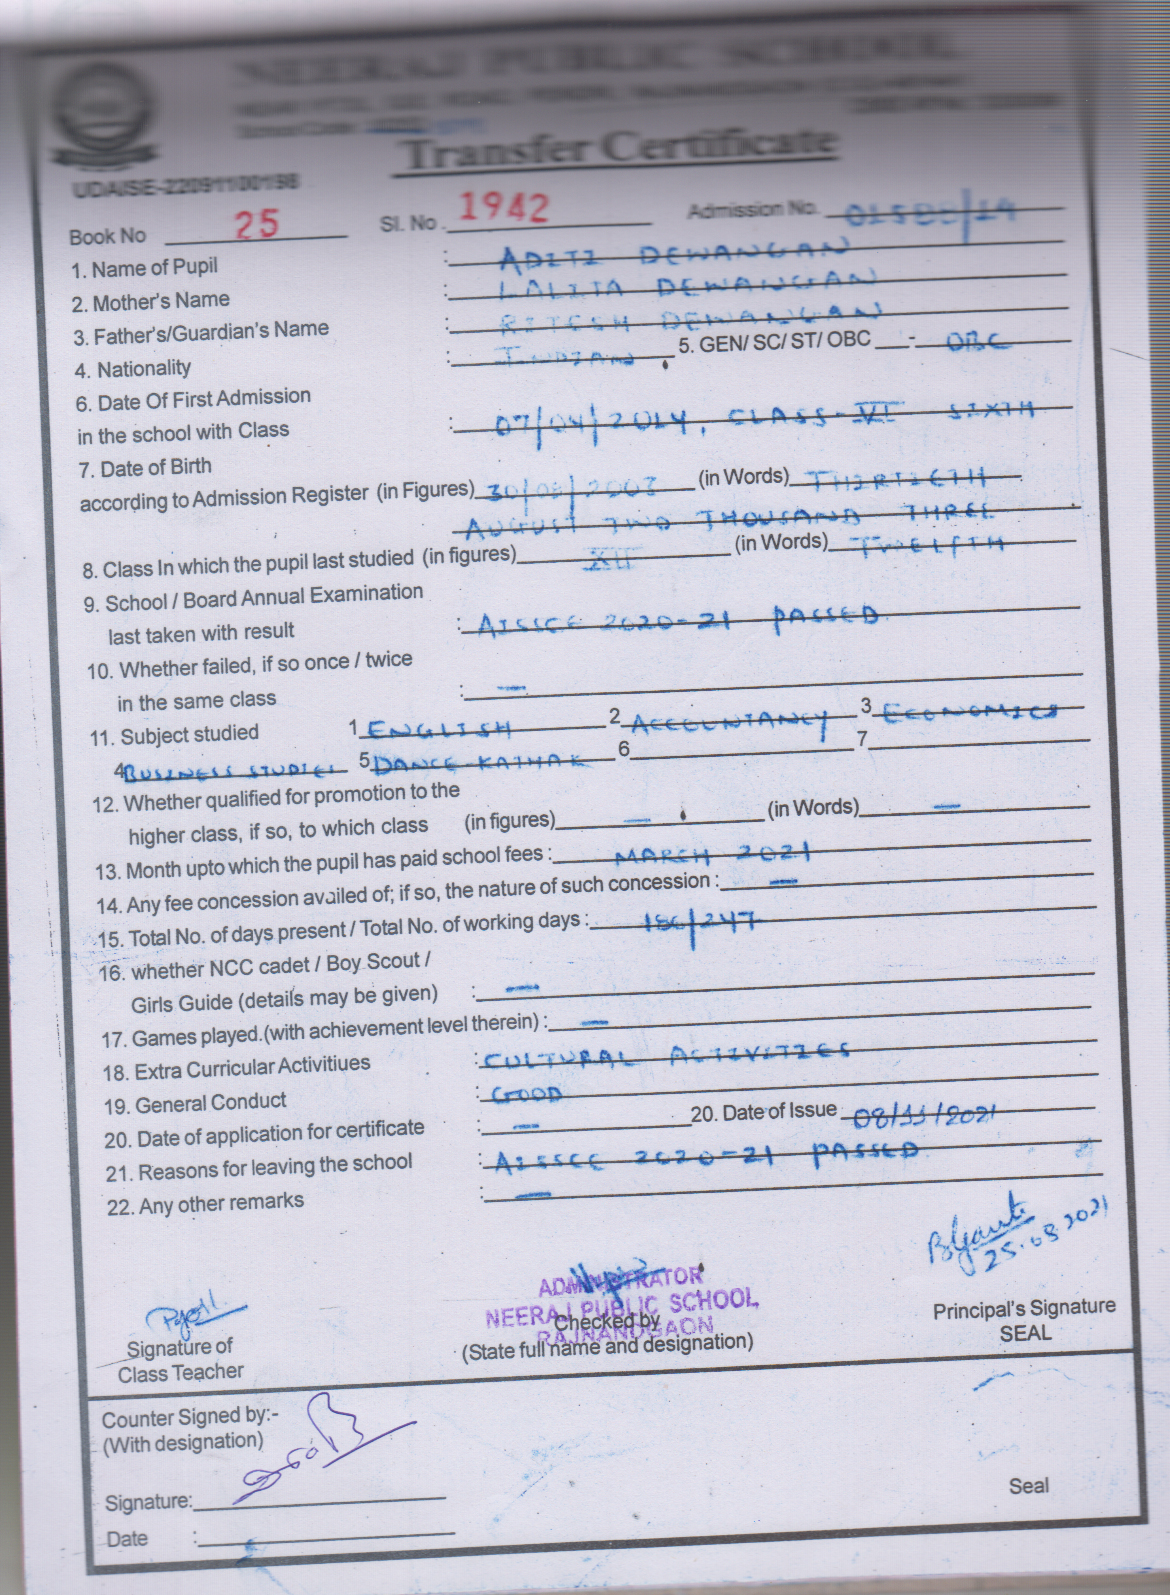 NEERAJ PUBLIC SCHOOL
Transfer Certificate
UDAISE-22091100198
Book No 25 Sl. No. 1942 Admission No.
1. Name of Pupil : ADITI DEWANGAN
2. Mother's Name : LALITA DEWANGAN
3. Father's/Guardian's Name : RITESH DEWANGAN
4. Nationality : INDIAN 5. GEN/ SC/ ST/ OBC - OBC
6. Date Of First Admission
in the school with Class : 07/04/2014, CLASS-VI SIXTH
7. Date of Birth
according to Admission Register (in Figures) 30/08/2003 (in Words) THIRTIETH
AUGUST TWO THOUSAND THREE
8. Class In which the pupil last studied (in figures) XII (in Words) TWELFTH
9. School / Board Annual Examination
last taken with result : AISSCE 2020-21 PASSED
10. Whether failed, if so once / twice
in the same class : —
11. Subject studied 1 ENGLISH 2 ACCOUNTANCY 3 ECONOMICS
4 BUSINESS STUDIES 5 DANCE-KATHAK 6 7
12. Whether qualified for promotion to the
higher class, if so, to which class (in figures) — (in Words) —
13. Month upto which the pupil has paid school fees : MARCH 2021
14. Any fee concession availed of; if so, the nature of such concession : —
15. Total No. of days present / Total No. of working days : 186/247
16. whether NCC cadet / Boy Scout /
Girls Guide (details may be given) : —
17. Games played.(with achievement level therein) : —
18. Extra Curricular Activitiues : CULTURAL ACTIVITIES
19. General Conduct : GOOD
20. Date of application for certificate : — 20. Date of Issue 08/11/2021
21. Reasons for leaving the school : AISSCE 2020-21 PASSED
22. Any other remarks : —
25.08.2021
ADMINISTRATOR
NEERAJ PUBLIC SCHOOL
RAJNANDGAON
Signature of
Class Teacher
Checked by
(State full name and designation)
Principal's Signature
SEAL
Counter Signed by:-
(With designation)
Signature:
Seal
Date :